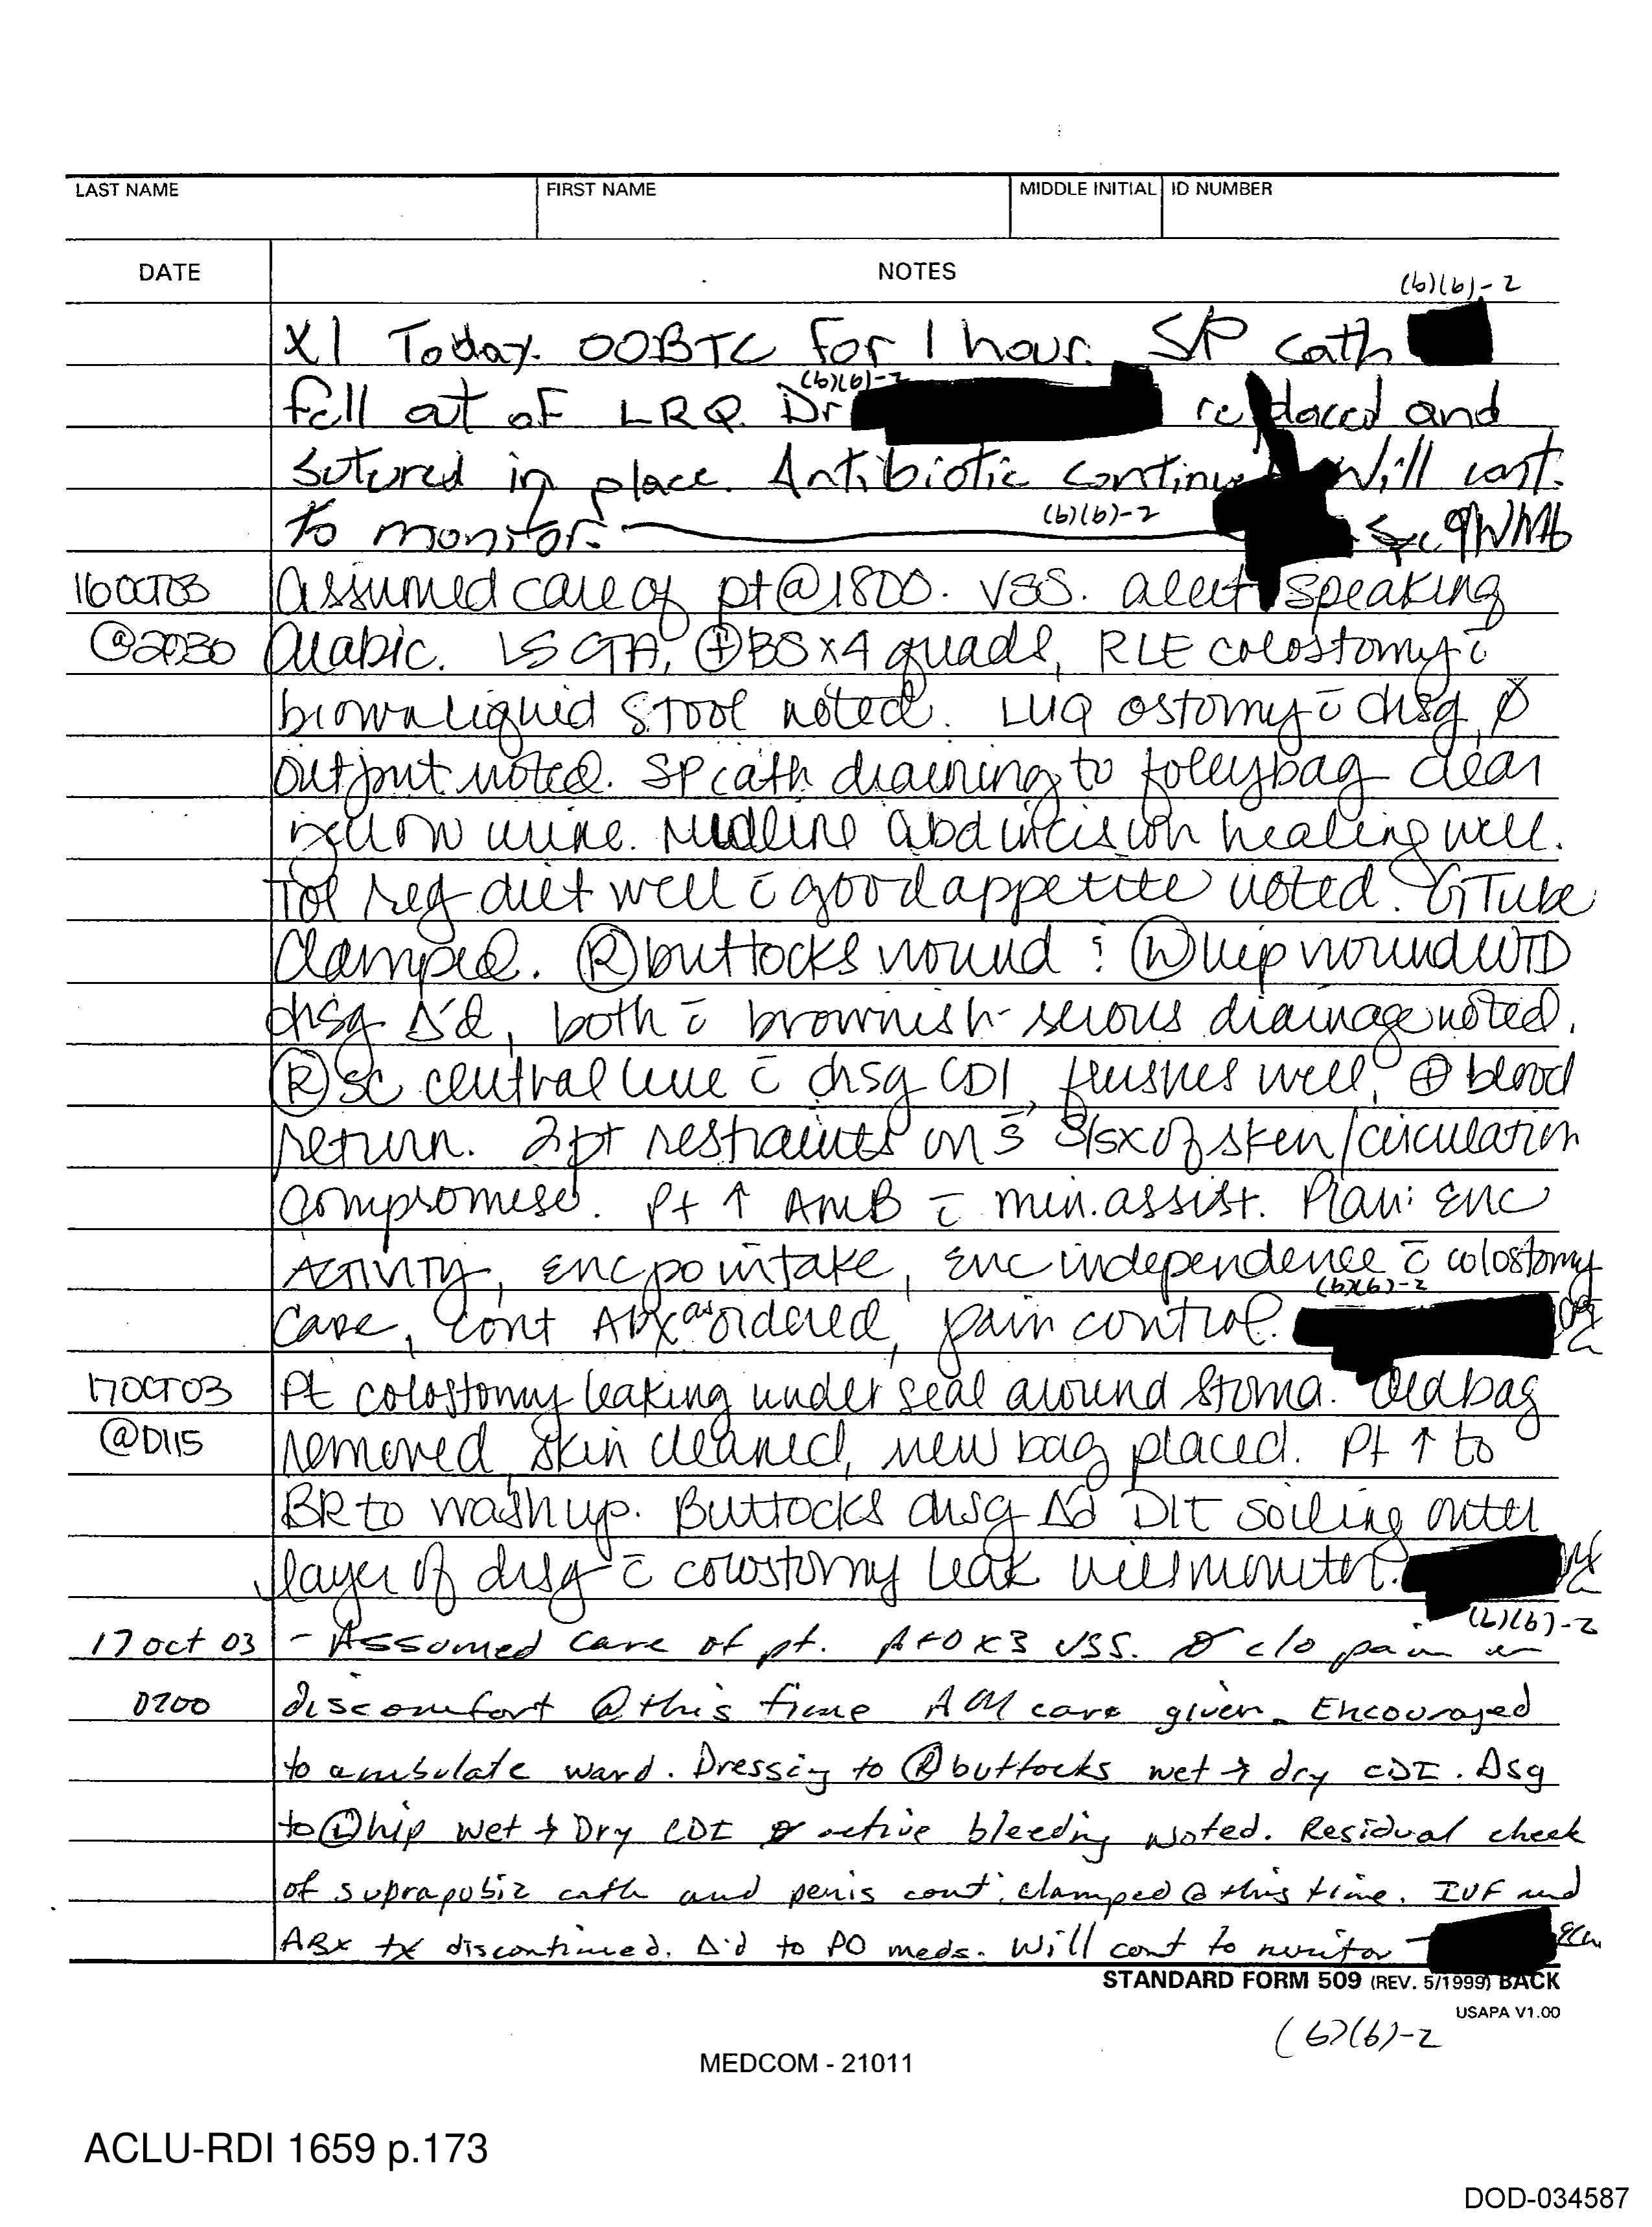 LAST NAME FIRST NAME MIDDLE INITIAL ID NUMBER
DATE NOTES
(b)(6)-2
X1 Today. OOBTC for 1 hour. SP cath
fell out of LRQ. Dr (b)(6)-2 replaced and
sutured in place. Antibiotic continue Will cont.
to monitor. (b)(6)-2
16OCT03 Assumed care of pt @ 1800. VSS. alert speaking
@2030 Arabic. LS CTA, ⊕BS x4 quads, RLE colostomy c̄
brown liquid stool noted. LUQ ostomy c̄ drsg, Ø
output noted. SP cath draining to foley bag clear
yellow urine. Midline abd incision healing well.
Tol reg diet well c̄ good appetite noted. GTube
clamped. Ⓡ buttocks wound & Ⓛ hip wound WTD
drsg Δ'd, both c̄ brownish-serous drainage noted.
Ⓡ SC central line c̄ drsg CDI, flushes well, ⊕ blood
return. 2pt restraints on s̄ S/Sx of skin/circulation
compromise. Pt ↑ AMB c̄ min. assist. Plan: Enc
Activity, enc po intake, enc independence c̄ colostomy
care, cont ABX as ordered, pain control. (b)(6)-2
17OCT03 Pt colostomy leaking under seal around stoma. Old bag
@0115 removed, skin cleaned, new bag placed. Pt ↑ to
BR to wash up. Buttocks drsg Δ'd D/T soiling outer
layer of drsg c̄ colostomy leak will monitor.
(b)(6)-2
17 oct 03 - Assumed care of pt. A+O x3 VSS. Ø c/o pain or
0700 discomfort @ this time AM care given. Encouraged
to ambulate ward. Dressing to Ⓡ buttocks wet → dry CDI. Dsg
to Ⓛ hip wet → Dry CDI Ø active bleeding noted. Residual check
of suprapubic cath and penis cont; clamped @ this time. IVF and
ABX tx discontinued. Δ'd to PO meds. Will cont to monitor
STANDARD FORM 509 (REV. 5/1999) BACK
USAPA V1.00
(b)(6)-2
MEDCOM - 21011
ACLU-RDI 1659 p.173
DOD-034587